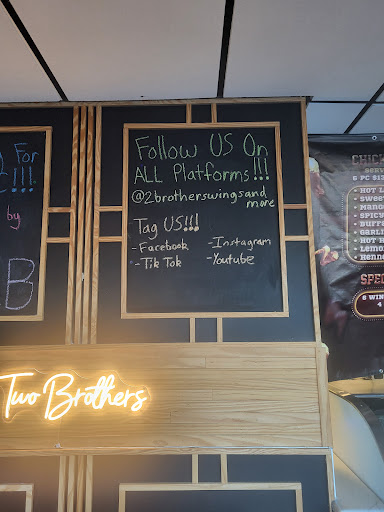 For
!!!
by
B
Follow US On
ALL Platforms!!!
@2brotherswingsand
more
Tag US!!!
-Facebook
-Instagram
-Tik Tok
-Youtube
Two Brothers
CHICK
6 PC $13
HOT L
Sweet
Mango
SPICY
Buffa
GARLI
HOT H
Lemo
Henne
SPEC
6 WIN
4